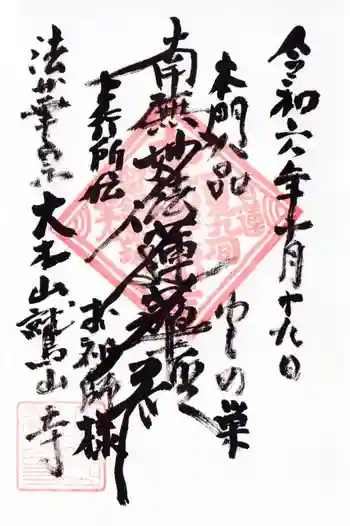 令和六年十月十九日
本門八品
わしの巣
南無妙法蓮華経
上行所伝
お祖師様
法華宗大本山鷲山寺